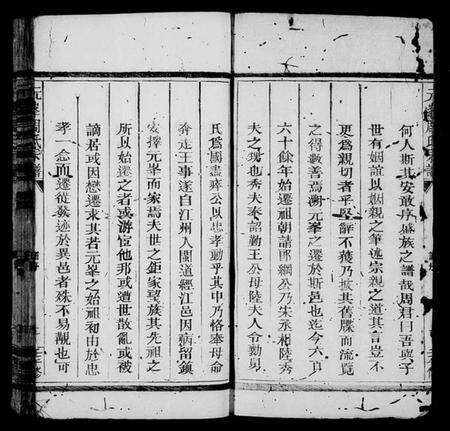 何人斯其安敢丹盛族之譜哉周君曰吾與子
世有姻誼以姻親之筆述宗親之道其言豈不
更為親切者乎堅辭不獲乃披其舊牒而流覽
之得數善焉溯元峯之遷於斯邑也迄今六百
六十餘年始遷祖朝請郎綱公乃朱丞相陸秀
夫之甥也秀夫奉詔勤王公母陸夫人令勁勇
氏為國盡瘁公以忠孝動乎其中乃恪奉母命
奔走王事遂自江州人閩道經江邑因病留鎮
安擇元峯而家焉夫世之鉅家望族其先祖之
所以始遷之者或游宦他邦或遭世散亂或被
謫居或因戀遷求其者元峯之始祖和由於忠
孝一念而遷徙發迹於異邑者殊不易覯也可
周氏宗譜